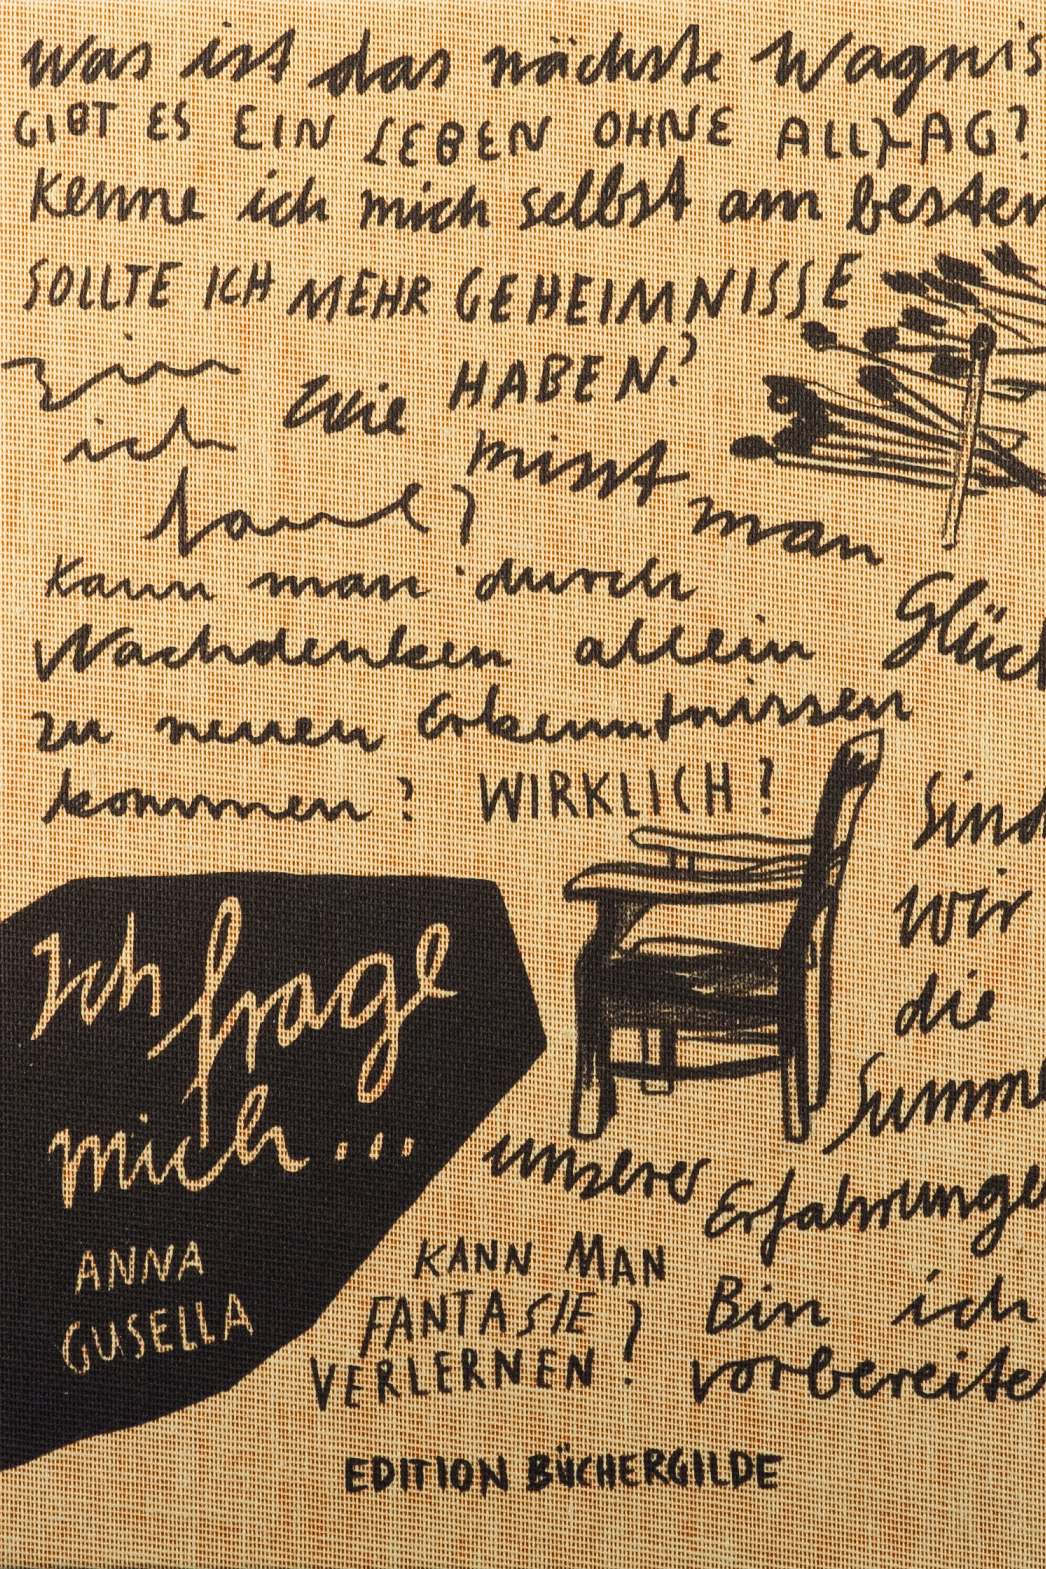 Was ist das nächste Wagnis
GIBT ES EIN LEBEN OHNE ALLTAG?
Kenne ich mich selbst am besten
SOLLTE ICH MEHR GEHEIMNISSE
HABEN?
Bin
ich
faul?
Wie
misst man
Glück
Kann man durch
Nachdenken allein
zu neuen Erkenntnissen
kommen? WIRKLICH?
Sind
wir
die
Summe
unserer Erfahrungen
Ich frage
mich...
ANNA
GUSELLA
KANN MAN
FANTASIE
VERLERNEN?
Bin ich
vorbereitet
EDITION BÜCHERGILDE